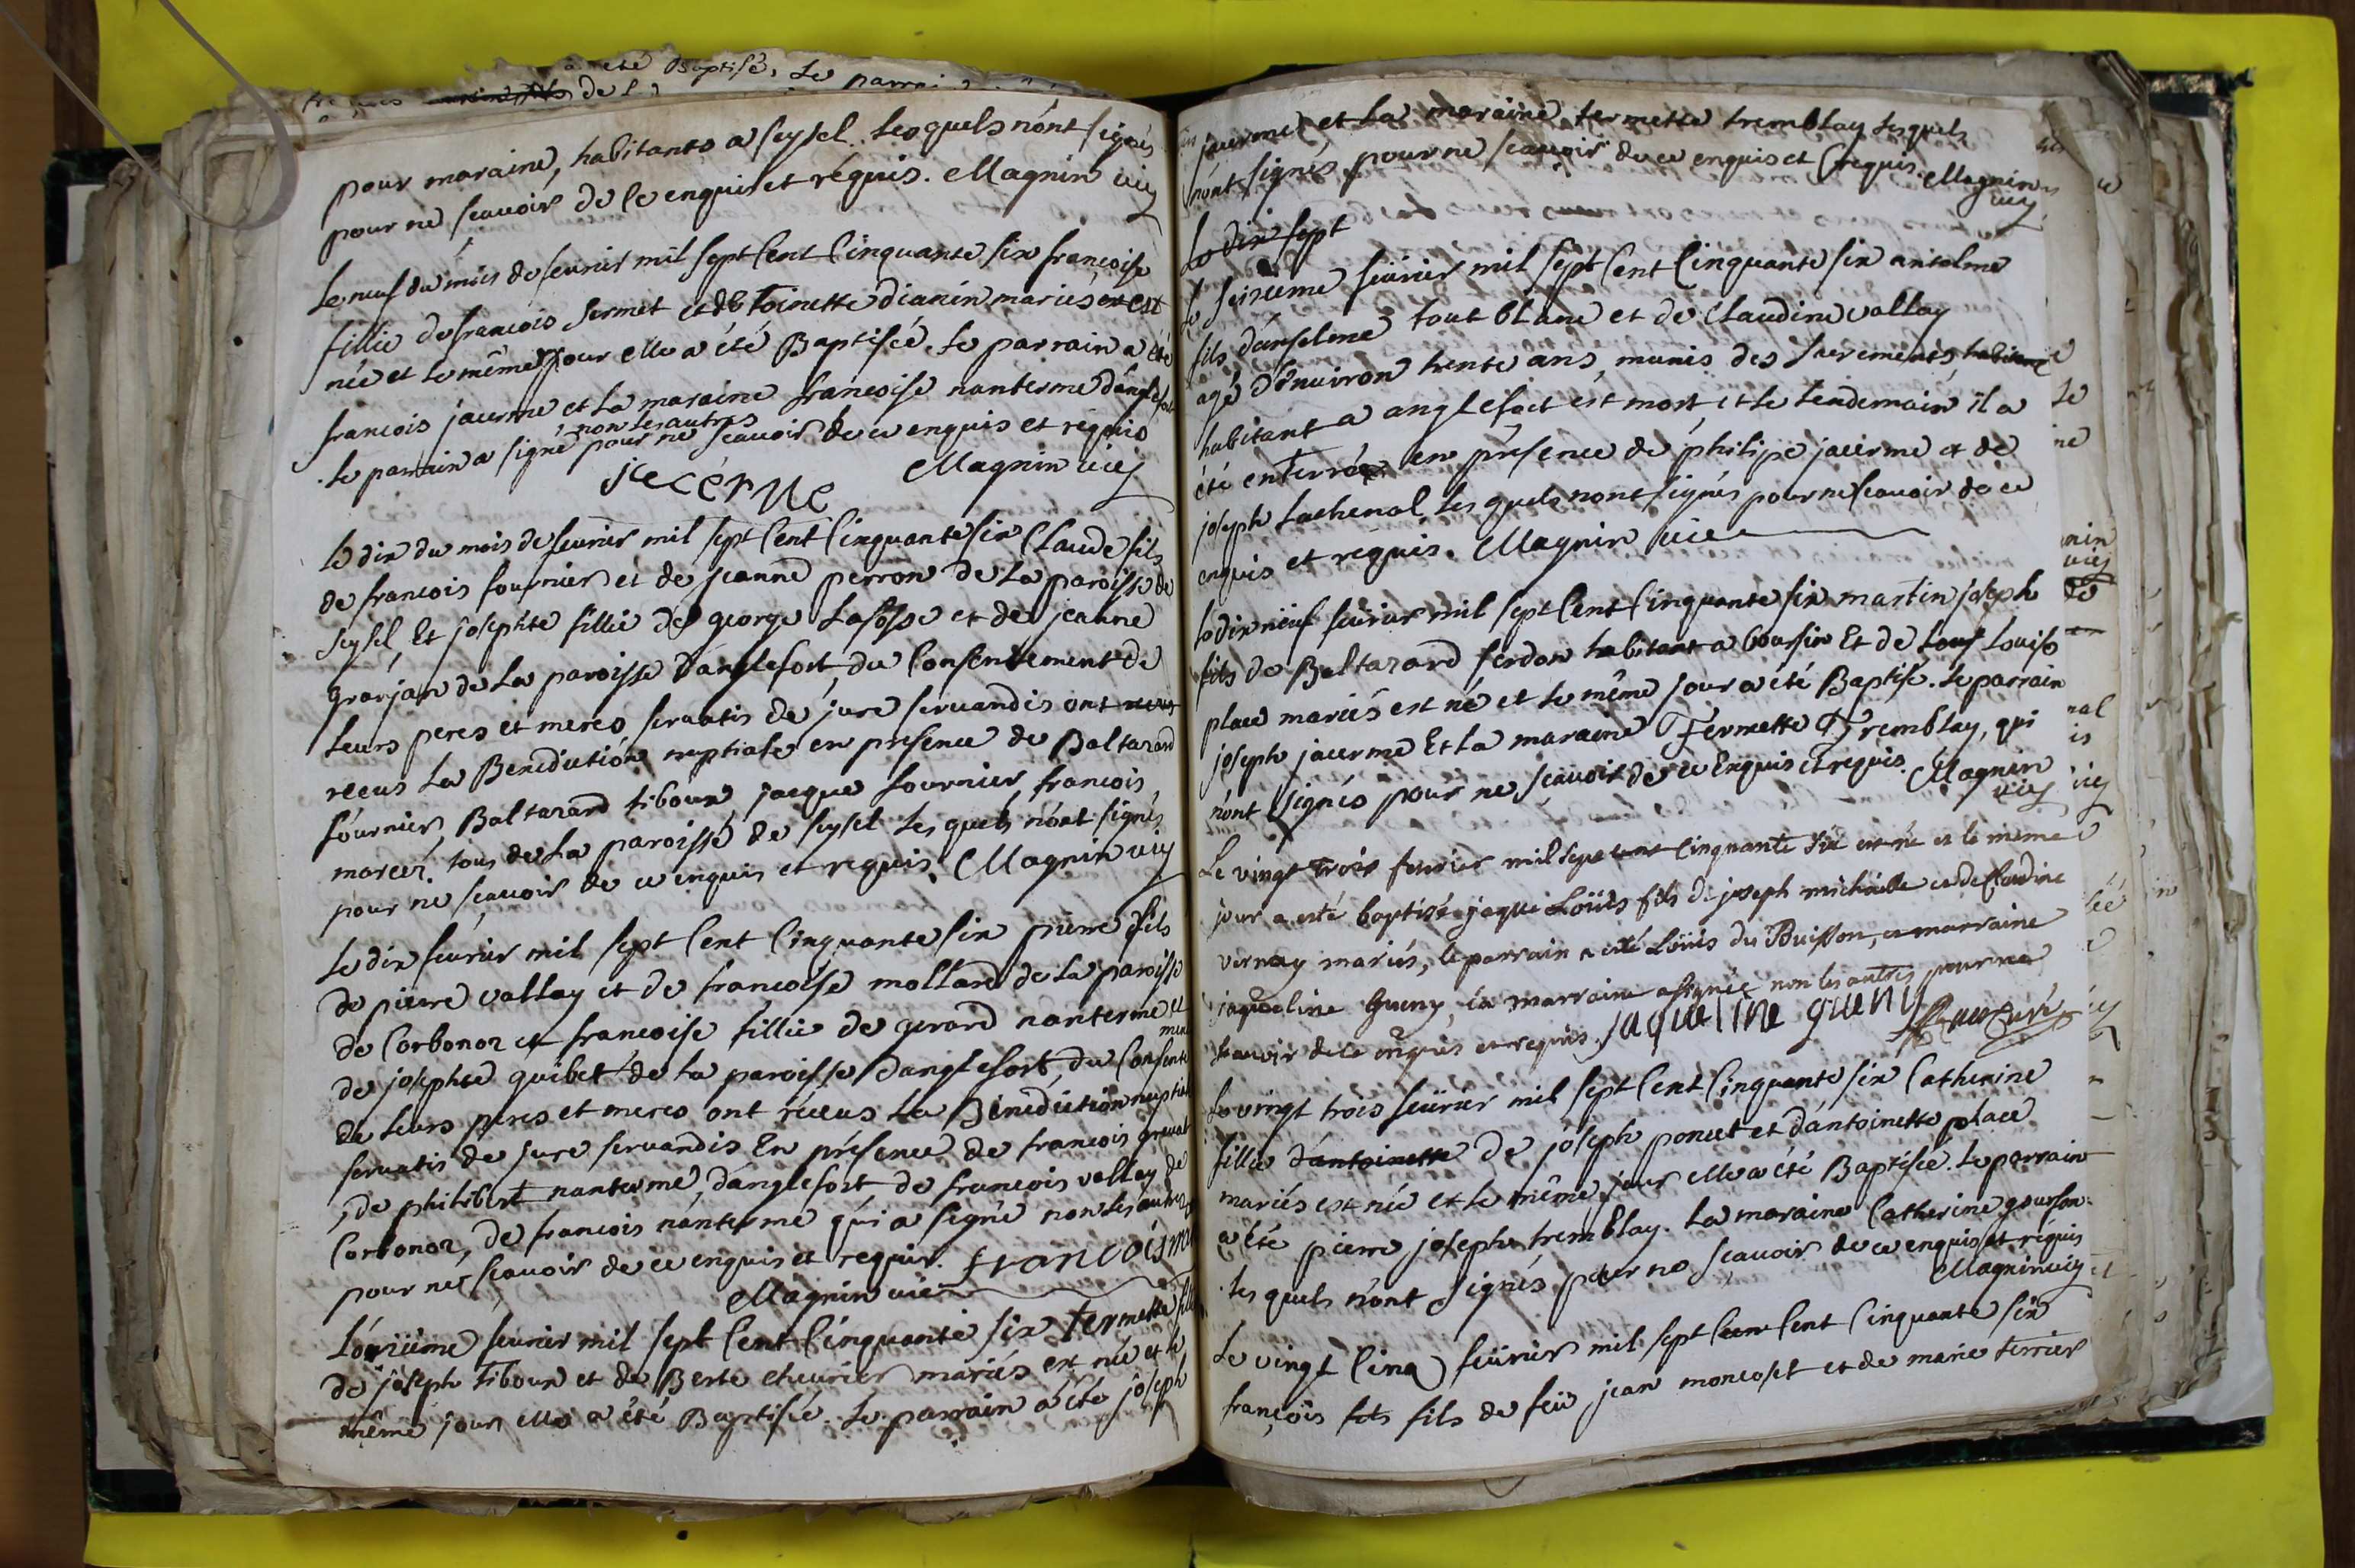 a eté Baptisé, Le parrai
de
pour maraine, habitants a seysel. Lesquels n'ont signés
pour ne scauoir de ce enquis et réquis. Magnin vic
Le neuf du mois de feurier mil sept Cent Cinquante six françoise
fillie de francois fermet et de Toinette dianin mariés est
née et le même jour elle a été Baptisée. Le parrain a été
francois jacerme et la maraine francoise nanterme d'anglefort
Le parrain a signé non les autres pour ne scauoir de ce enquis et requis
jecerme Magnin vic
Le dix du mois de feurier mil sept Cent Cinquante six Claude fils
de francois fournier et de jeanne perron de La paroisse de
seysel, Et josephte fillie de george Lafosse et de jeanne
granjan de La paroisse d'anglefort, du Consentement de
Leurs peres et meres, seruatis de jure seruandis ont
recus La Benediction nuptiale en presence de Baltazard
fournier, Baltazard tiboux jacque fournier, francois
marcer, tous de La paroisse de seysel Les quels n'ont signés
pour ne scauoir de ce enquis et requis. Magnin vic
Le dix feurier mil sept Cent Cinquante six pierre fils
de pierre vallay et de francoise mollard de La paroisse
de Corbonoz et francoise fillie de gerard nanterme et
de josephte guibet de La paroisse d'anglefort, du Consentement
de Leurs peres et meres ont réceus La Bénédiction nuptiale
seruatis de jure seruandis En présence de francois
, de philibert nanterme, d'anglefort de francois vallay de
Corbonoz, de francois nanterme qui a signé non les autres
pour ne scauoir de ce enquis et requis. francois
Magnin vic
L'onzième feurier mil sept Cent Cinquante six fermette
de joseph tiboux et de Berte cheurier mariés est née et le
même jour elle a été Baptisée. Le parrain a été joseph
jacerme et La maraine fermette tremblay Lesquels
n'ont signés pour ne scauoir de ce enquis et requis. Magnin
vic
Le dix sept
Le seizieme féürier mil sept Cent Cinquante six antelme
fils d'anselme tout blanc et de Claudine vallay
agé d'enuiron trente ans, munis des sacrements, habitant
habitant a anglefort est mort et le lendemain il a
été enterré en présence de philipe jacerme et de
joseph Lachenal Les quels n'ont signés pour ne scauoir de ce
enquis et requis. Magnin vic
Le dix neuf féürier mil sept Cent Cinquante six martin joseph
fils de Baltazard ferdon habitant a boursin Et de Louise
place mariés est né et le même jour a été Baptisé. Le parrain
joseph jacerme Et La maraine Fermette Tremblay, qui
n'ont signés pour ne scauoir de ce Enquis et requis. Magnin
vic
Le vingt trois feurier mil sept cent cinquante six est né et le même
jour a esté baptisé jaque Loüis fils de joseph michaille et de claudine
vernay mariés, le parrain a esté Loüis du Buisson, et marraine
jaqueline Gueny, la marraine a signée non les autres pour ne
scauoir de ce enquis et requis. jaqueline gueny
Le vingt trois féürier mil sept Cent Cinquante six Catherine
fillie d'antoinette De joseph poncet et d'antoinette place
mariés est née et le même jour elle a été Baptisée. Le parrain
a été pierre joseph tremblay. La maraine Catherine gourson.
Les quels n'ont signés pour ne scauoir de ce enquis et réquis
Magnin vic
Le vingt Cinq féürier mil sept Cent Cinquante six
françois fils de feü jean moncoset et de marie terrier